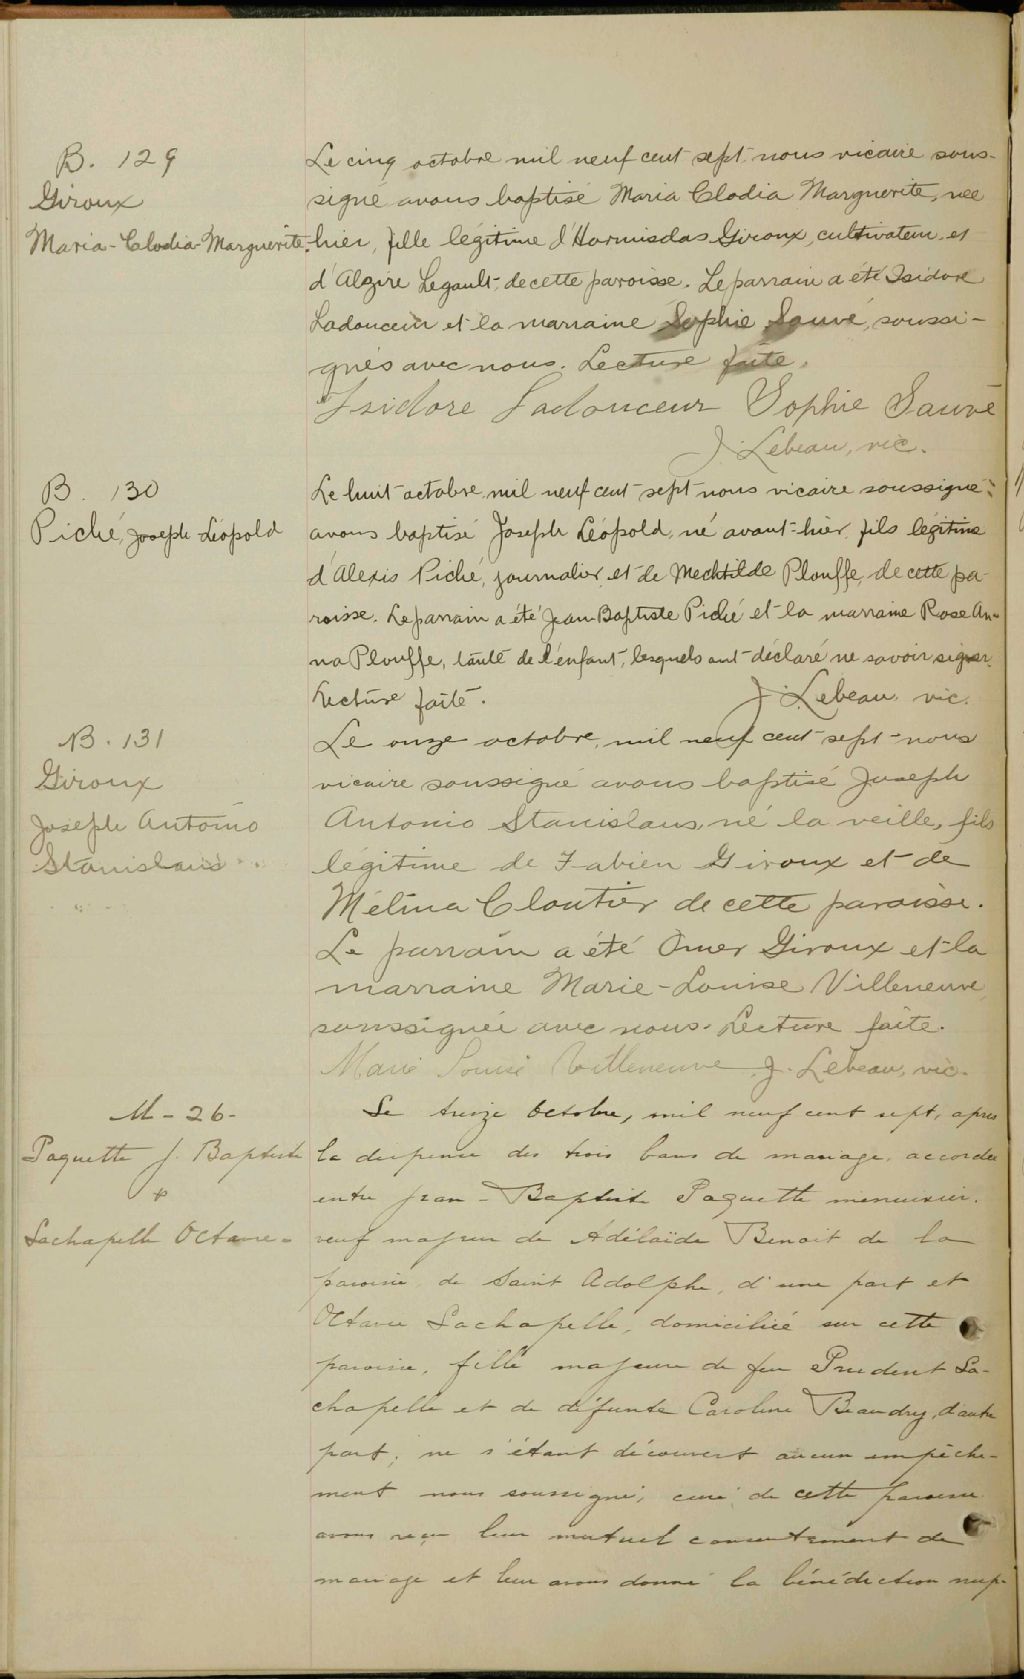 B. 129
Giroux
Maria-Clodia-Marguerite.
Le cinq octobre mil neuf cent sept nous vicaire sous-
signé avons baptisé Maria Clodia Marguerite, née
hier, fille légitime d'Hormisdas Giroux, cultivateur et
d'Alzire Legault, de cette paroisse. Le parrain a été Isidore
Ladouceur et la marraine Sophie Sauvé, soussi-
gnés avec nous. Lecture faite.
Isidore Ladouceur Sophie Sauvé
J. Lebeau, vic.
B. 130
Piché, Joseph-Léopold
Le huit octobre, mil neuf cent sept nous vicaire soussigné
avons baptisé Joseph Léopold, né avant-hier, fils légitime
d'Alexis Piché, journalier, et de Mechtilde Plouffe, de cette pa-
roisse. Le parrain a été Jean-Baptiste Piché et la marraine Rose An-
na Plouffe, tante de l'enfant, lesquels ont déclaré ne savoir signer.
Lecture faite. J. Lebeau, vic.
B. 131
Giroux
Joseph Antonio
Stanislaus
Le onze octobre, mil neuf cent sept nous
vicaire soussigné avons baptisé Joseph
Antonio Stanislaus, né la veille, fils
légitime de Fabien Giroux et de
Mélina Cloutier de cette paroisse.
Le parrain a été Omer Giroux et la
marraine Marie-Louise Villeneuve,
soussignée avec nous. Lecture faite.
Marie Louise Villeneuve J. Lebeau, vic.
M-26-
Paquette J. Baptiste
&
Lachapelle Octavie-
Le treize Octobre, mil neuf cent sept, après
la dispense des trois bans de mariage, accordée
entre Jean-Baptiste Paquette menuisier,
veuf majeur de Adélaïde Benoit de la
paroisse de Saint Adolphe, d'une part et
Octavie Lachapelle, domiciliée sur cette
paroisse, fille majeure de feu Prudent La-
chapelle et de défunte Caroline Beaudry, d'autre
part; ne s'étant découvert aucun empêche-
ment nous soussigné, curé de cette paroisse
avons reçu leur mutuel consentement de
mariage et leur avons donné la bénédiction nup-